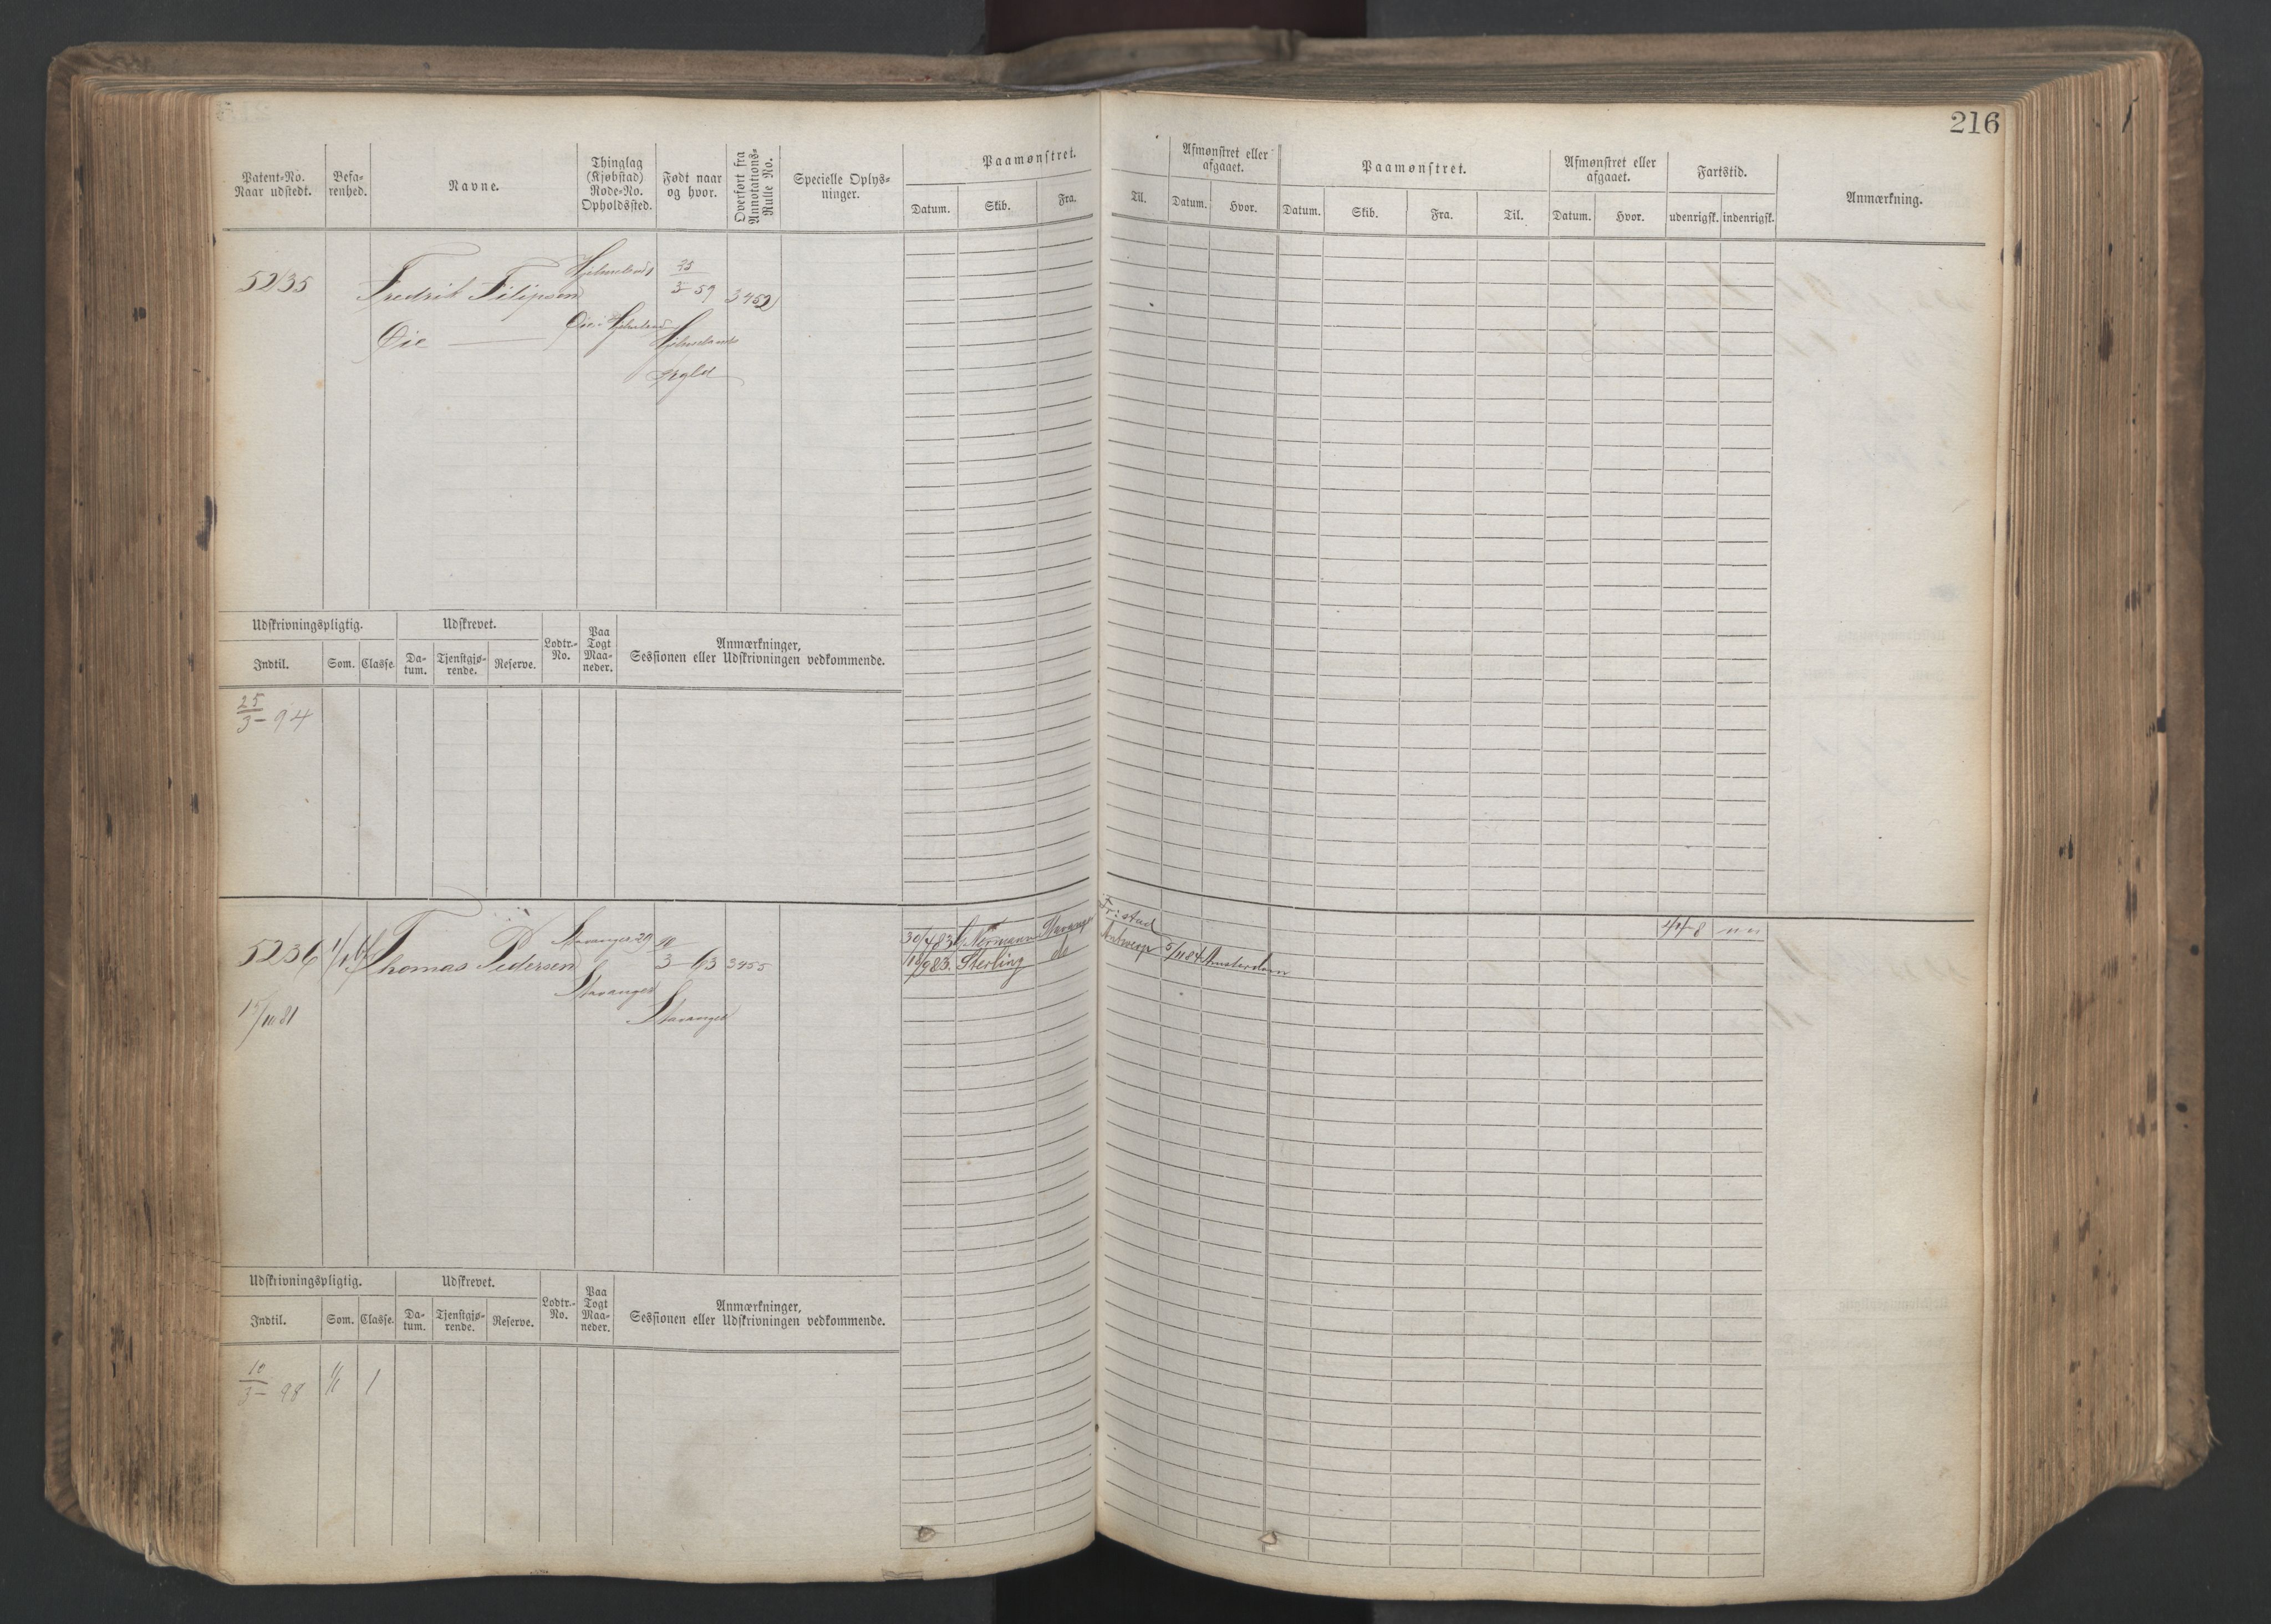 216
Patent-No. Naar udstedt.
Befa-renhed.
Navne.
Thinglag (Kjøbstad) Rode-No. Opholdssted.
Født naar og hvor.
Overført fra Annotations-Rulle No.
Specielle Oplys-ninger.
Paamønstret.
Datum.
Skib.
Fra.
Til.
Afmønstret eller afgaaet.
Datum.
Hvor.
Paamønstret.
Datum.
Skib.
Fra.
Til.
Afmønstret eller afgaaet.
Datum.
Hvor.
Fartstid.
udenrigsk.
indenrigsk.
Anmærkning.
5235
Fredrik Filipsen
Øie
Hjelmeland
Øie i Hjelmeland
25/3 59
Hjelmelands
Prgld
3452
Udskrivningspligtig.
Udskrevet.
Lodtr.-No.
Paa Togt Maa-neder.
Anmærkninger,
Sessionen eller Udskrivningen vedkommende.
Indtil.
Som.
Classe.
Da-tum.
Tjenstgjø-rende.
Reserve.
25/3 - 94
5236
Thomas Pedersen
Stavanger 29
Stavanger
10/3 63
Stavanger
3455
15/10 81
30/4 83 Normann Stavanger
Fr:stad
Sterling do
Antwerp 5/11 84 Amsterdam
Udskrivningspligtig.
Udskrevet.
Lodtr.-No.
Paa Togt Maa-neder.
Anmærkninger,
Sessionen eller Udskrivningen vedkommende.
Indtil.
Som.
Classe.
Da-tum.
Tjenstgjø-rende.
Reserve.
10/3 - 98
1